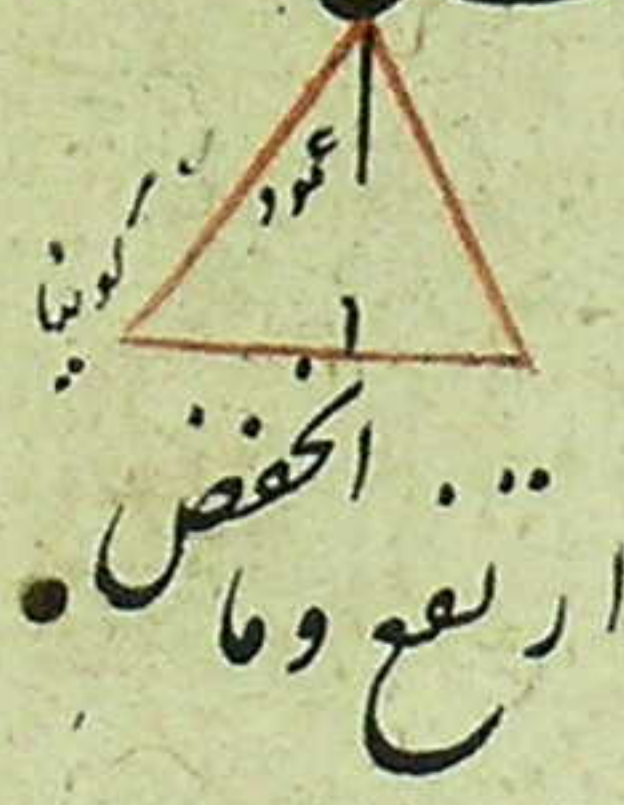 عمود
كونيا
ارتفع وما انخفض